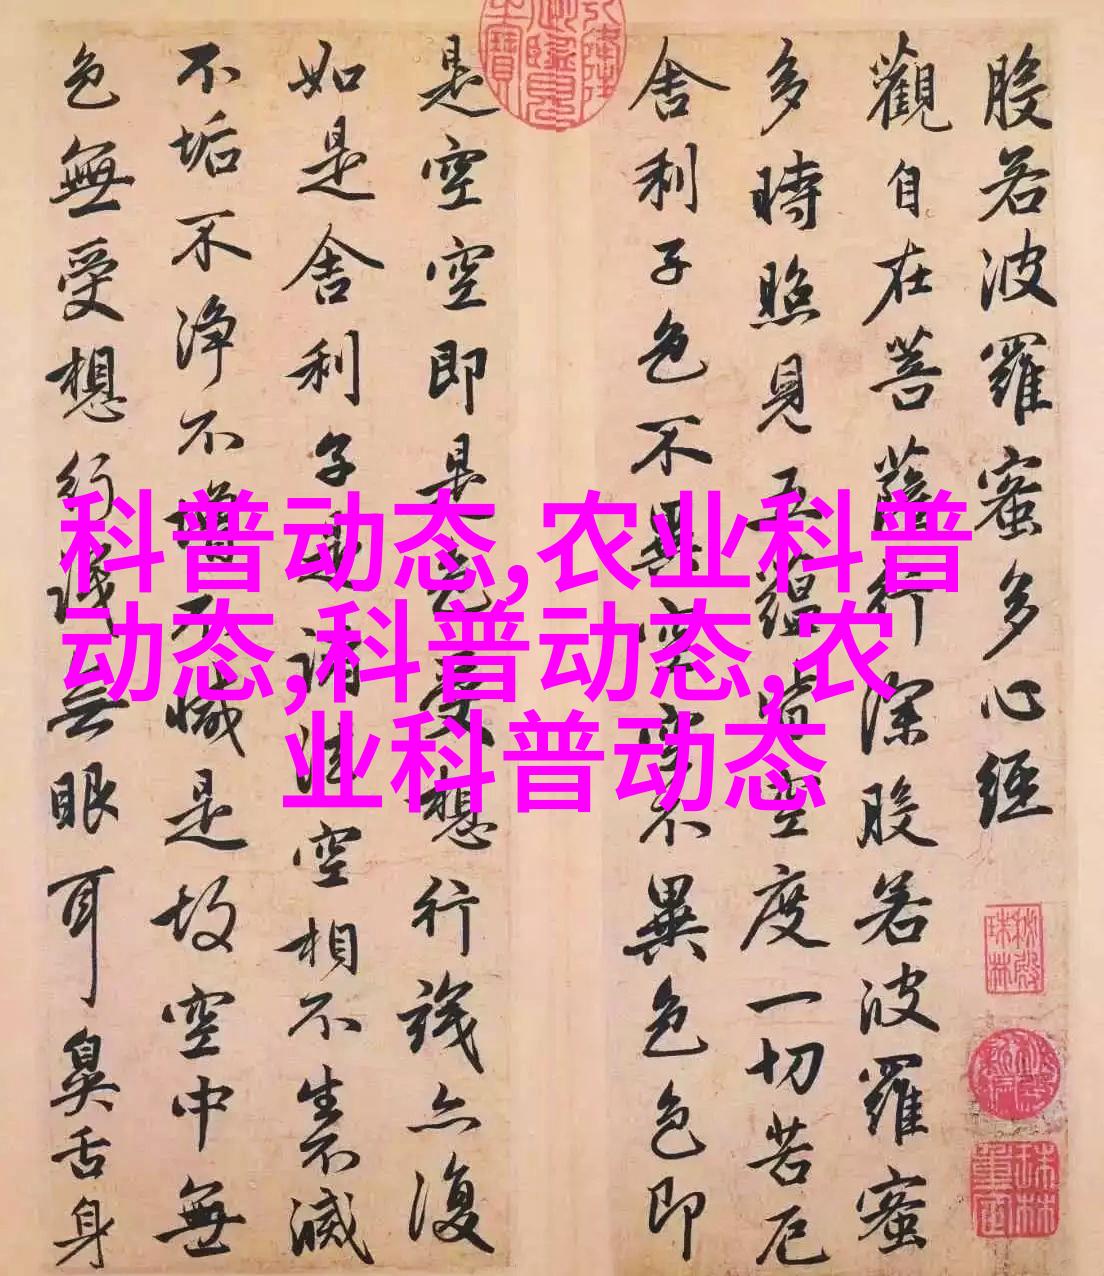 般若波羅蜜多心經
觀自在菩薩行深般若波羅蜜
多時照見五蘊皆空度一切苦厄
舍利子色不異空空不異色色即
是空空即是色受想行識亦復
如是舍利子是諸法空相不生不滅
不垢不淨不增不減是故空中無
色無受想行識无眼耳鼻舌身
科普动态,农业科普
动态,科普动态,农
业科普动态
秘殿珠林